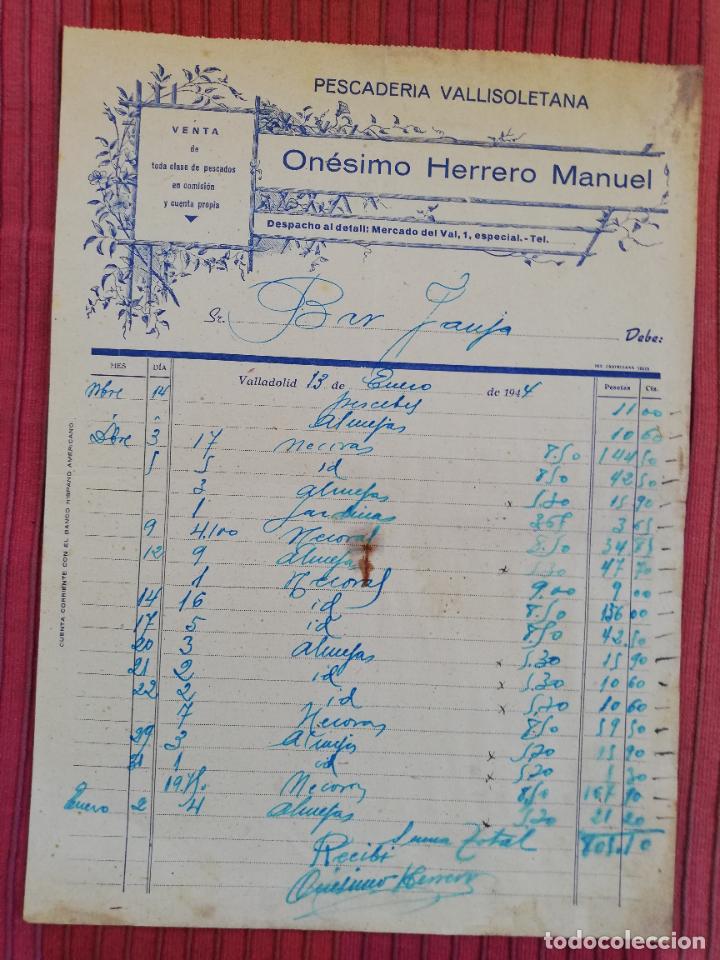 PESCADERIA VALLISOLETANA
VENTA
de
toda clase de pescados
en comisión
y cuenta propia
Onésimo Herrero Manuel
Despacho al detall: Mercado del Val, 1, especial.-Tel.
Sr. Bar Debe:
MES DÍA Valladolid 13 de Enero de 1944 Pesetas Cts.
Nbre 14 percebes 11 00
Almejas 10 60
Dbre 3 17 Necoras 8.50 144 50
5 5 id 8,50 42 50
3 Almejas x 5.30 15 90
1 Sardinas 3.65 3 65
9 4,100 Necoras 8.50 34 85
12 9 Almejas x 5.30 47 70
1 Necoras 9.00 9 00
14 16 id 8.50 136 00
17 5 id 8,50 42.50
20 3 Almejas x 5.30 15 90
21 2 id x 5.30 10 60
22 2 id x 5.30 10 60
7 Necoras 8,50 59 50
29 3 Almejas x 5.30 15 90
31 1 id x 5.30 5 30
Necoras 8,50 167 90
Enero 2 4 Almejas 5.30 21 20
Suma Total 805.10
Recibí
Onésimo Herrero
CUENTA CORRIENTE CON EL BANCO HISPANO AMERICANO.
todocoleccion.net